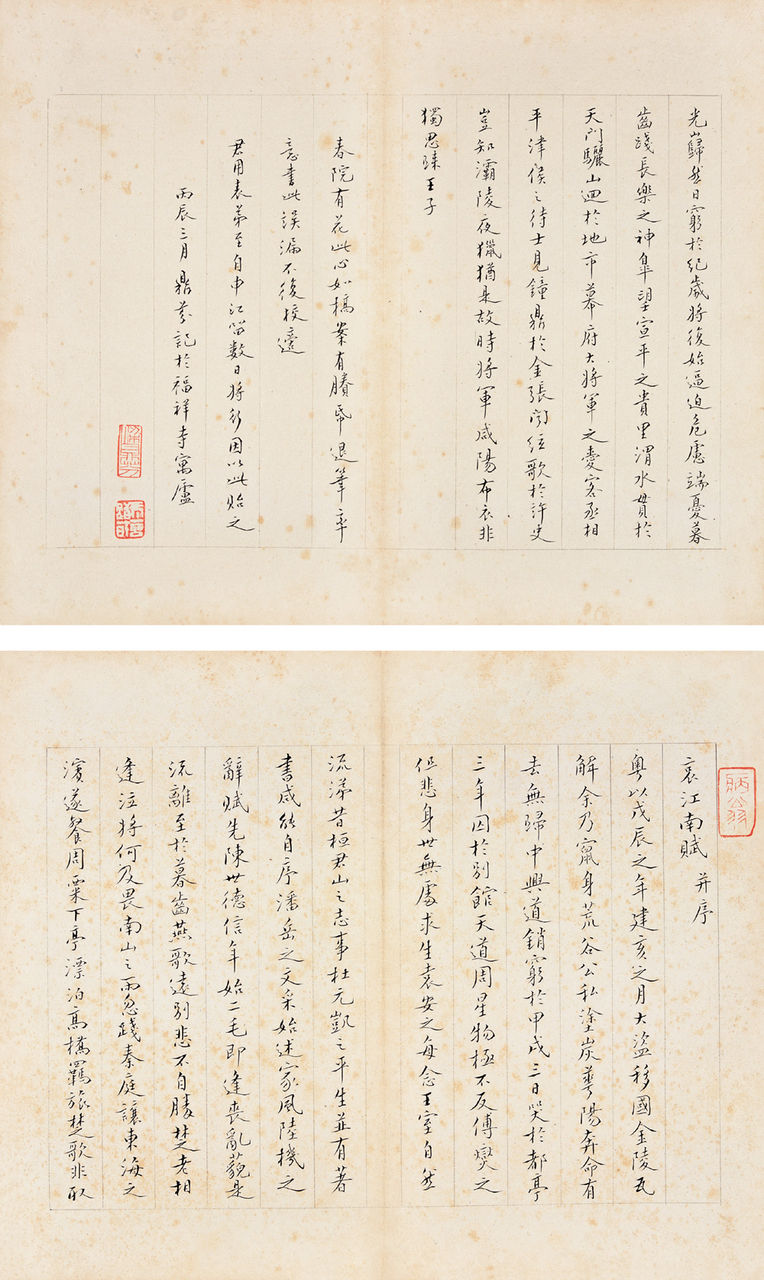 光巋然日窮於紀歲將復始逼迫危慮端憂暮
齒踐長樂之神皐望宣平之貴里渭水貫於
天門驪山迴於地市幕府大將軍之愛客丞相
平津侯之待士見鐘鼎於金張聞絃歌於許史
豈知灞陵夜獵猶是故時將軍咸陽布衣非
獨思歸王子
春院有花此心如槁案有賸帋退筆率
意書此誤漏不復校
君用表弟至自中江留數日將行因以此貽之
丙辰三月鼎芬記於福祥寺寓廬
哀江南賦 并序
粵以戊辰之年建亥之月大盜移國金陵瓦
解余乃竄身荒谷公私塗炭華陽奔命有
去無歸中興道銷窮於甲戌三日哭於都亭
三年囚於別館天道周星物極不反傅燮之
但悲身世無處求生袁安之每念王室自然
流涕昔桓君山之志事杜元凱之平生並有著
書咸能自序潘岳之文采始述家風陸機之
辭賦先陳世德信年始二毛即逢喪亂藐是
流離至於暮齒燕歌遠別悲不自勝楚老相
逢泣將何及畏南山之雨忽踐秦庭讓東海之
濱遂餐周粟下亭漂泊高橋羈旅楚歌非取